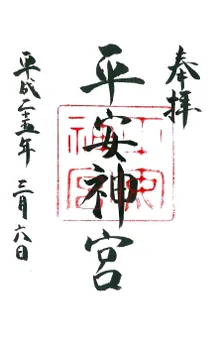 奉拝
平安神宮
平成二十五年 三月六日